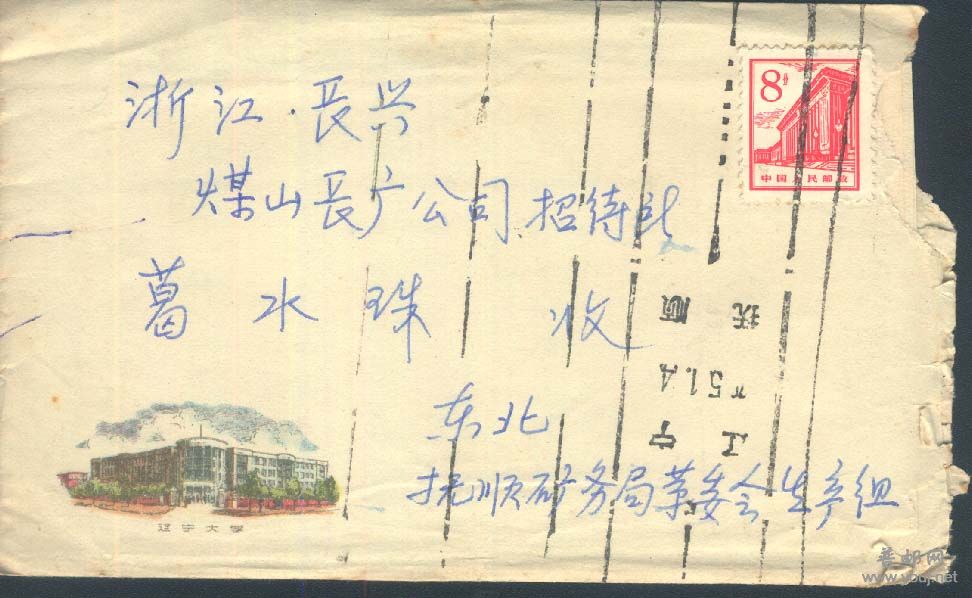 浙江·長兴
煤山長广公司招待站
葛水珠 收
东北
抚顺矿务局革委会生产组
8分
中国人民邮政
辽宁
抚顺
辽宁大学
普邮网
www.youj.net